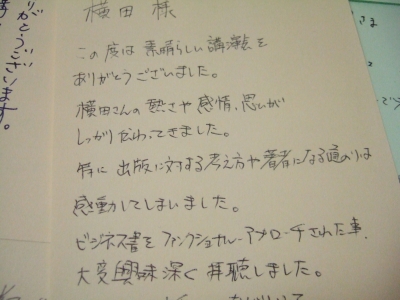 横田 様
この度は 素晴らしい講演を
ありがとうございました。
横田さんの 熱さや 感情、思いが
しっかり伝わってきました。
特に 出版に対する考え方や著者になる道のりは
感動してしまいました。
ビジネス書を ファンクショナル・アプローチされた事、
大変興味深く 拝聴しました。
りがとうございます。
さま